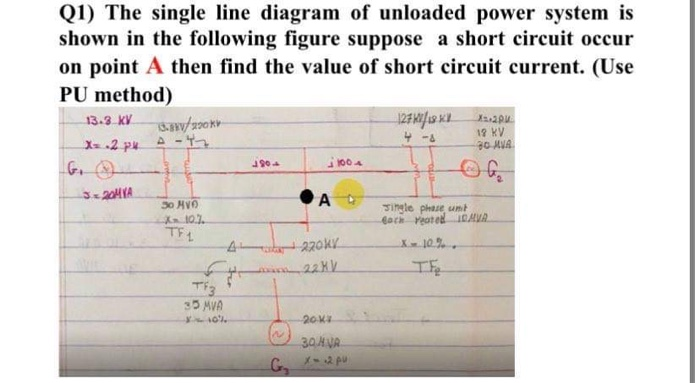 Q1) The single line diagram of unloaded power system is
shown in the following figure suppose a short circuit occur
on point A then find the value of short circuit current. (Use
PU method)
13.8 KV
X= .2 PU
G₁
S=20MVA
13.8KV/220KV
Δ - Y
30 MVA
X= 10%
TF1
j80
j100
A
127KV/18 KV
Y -Δ
X=.2PU
18 KV
30 MVA
G₂
Single phase unit
each reated 10MVA
X= 10%.
TF2
Δ
220KV
Y
22KV
TF3
35 MVA
X= 10%
20KV
30MVA
X= .2 PU
G₃